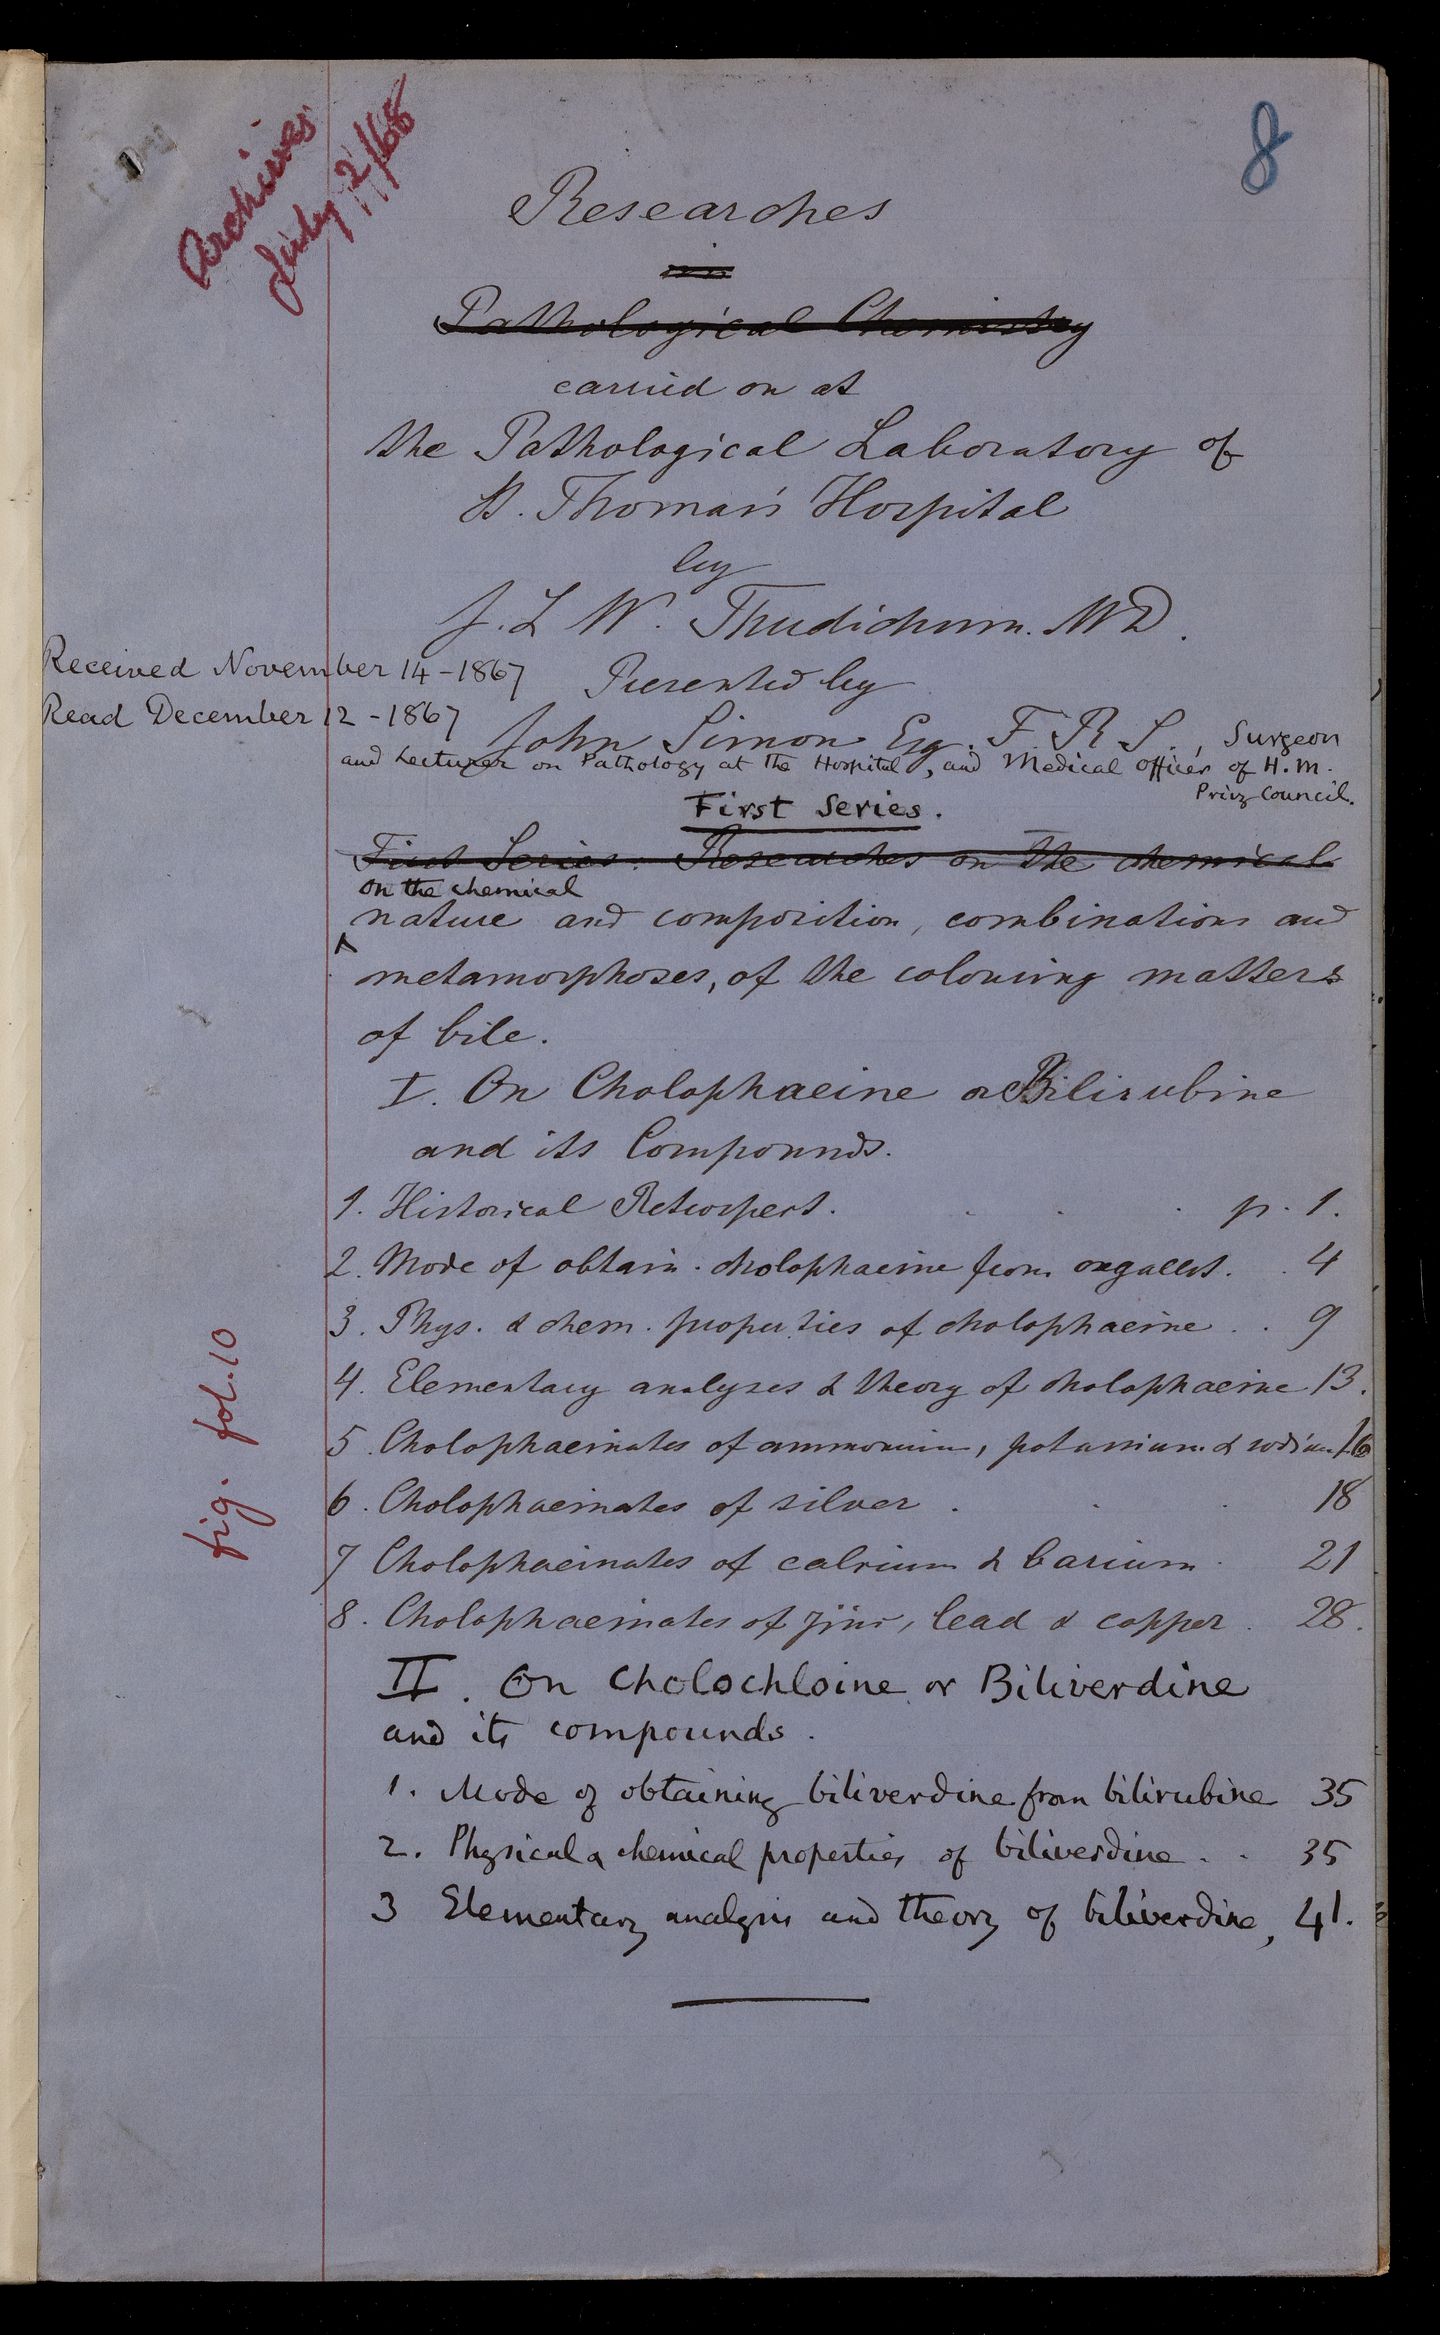 Archives
July 2/68
8
Researches
in
Pathological Chemistry
carried on at
the Pathological Laboratory of
St. Thomas's Hospital
by
J. L. W. Thudichum. MD.
Received November 14 - 1867
Presented by
Read December 12 - 1867
John Simon Esq. F. R. S., Surgeon
and Lecturer on Pathology at the Hospital, and Medical Officer of H.M.
Privy Council.
First Series.
First Series: Researches on the chemical
on the chemical
nature and composition, combinations and
metamorphoses, of the colouring matters
of bile.
I. On Cholophaeine or Bilirubine
and its Compounds.
1. Historical Retrospect. . . . p. 1.
2. Mode of obtain. cholophaeine from oxgallst. . 4
3. Phys. & chem. properties of cholophaeine . . 9
4. Elementary analyses & theory of cholophaeine 13.
5. Cholophaeinates of ammonium, potassium & sodium 16
6. Cholophaeinates of silver . . . 18
7 Cholophaeinates of calcium & barium . 21
8. Cholophaeinates of zinc, lead & copper . 28.
fig. fol. 10
II. On Cholochloine or Biliverdine
and its compounds.
1. Mode of obtaining biliverdine from bilirubine 35
2. Physical & chemical properties of biliverdine . . 35
3 Elementary analysis and theory of biliverdine, 41.